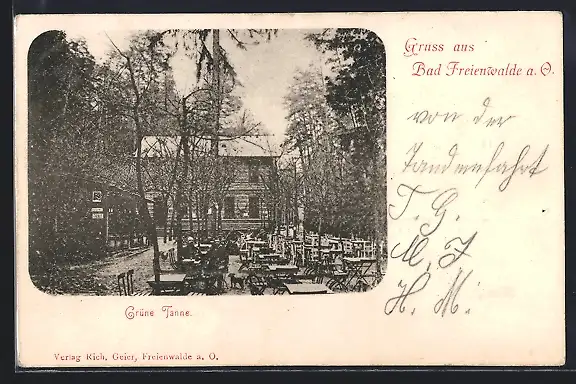 Gruss aus
Bad Freienwalde a. O.
von der
Tandenfahrt
T. G.
M. J
H. M.
Grüne Tanne.
Verlag Rich. Geier, Freienwalde a. O.